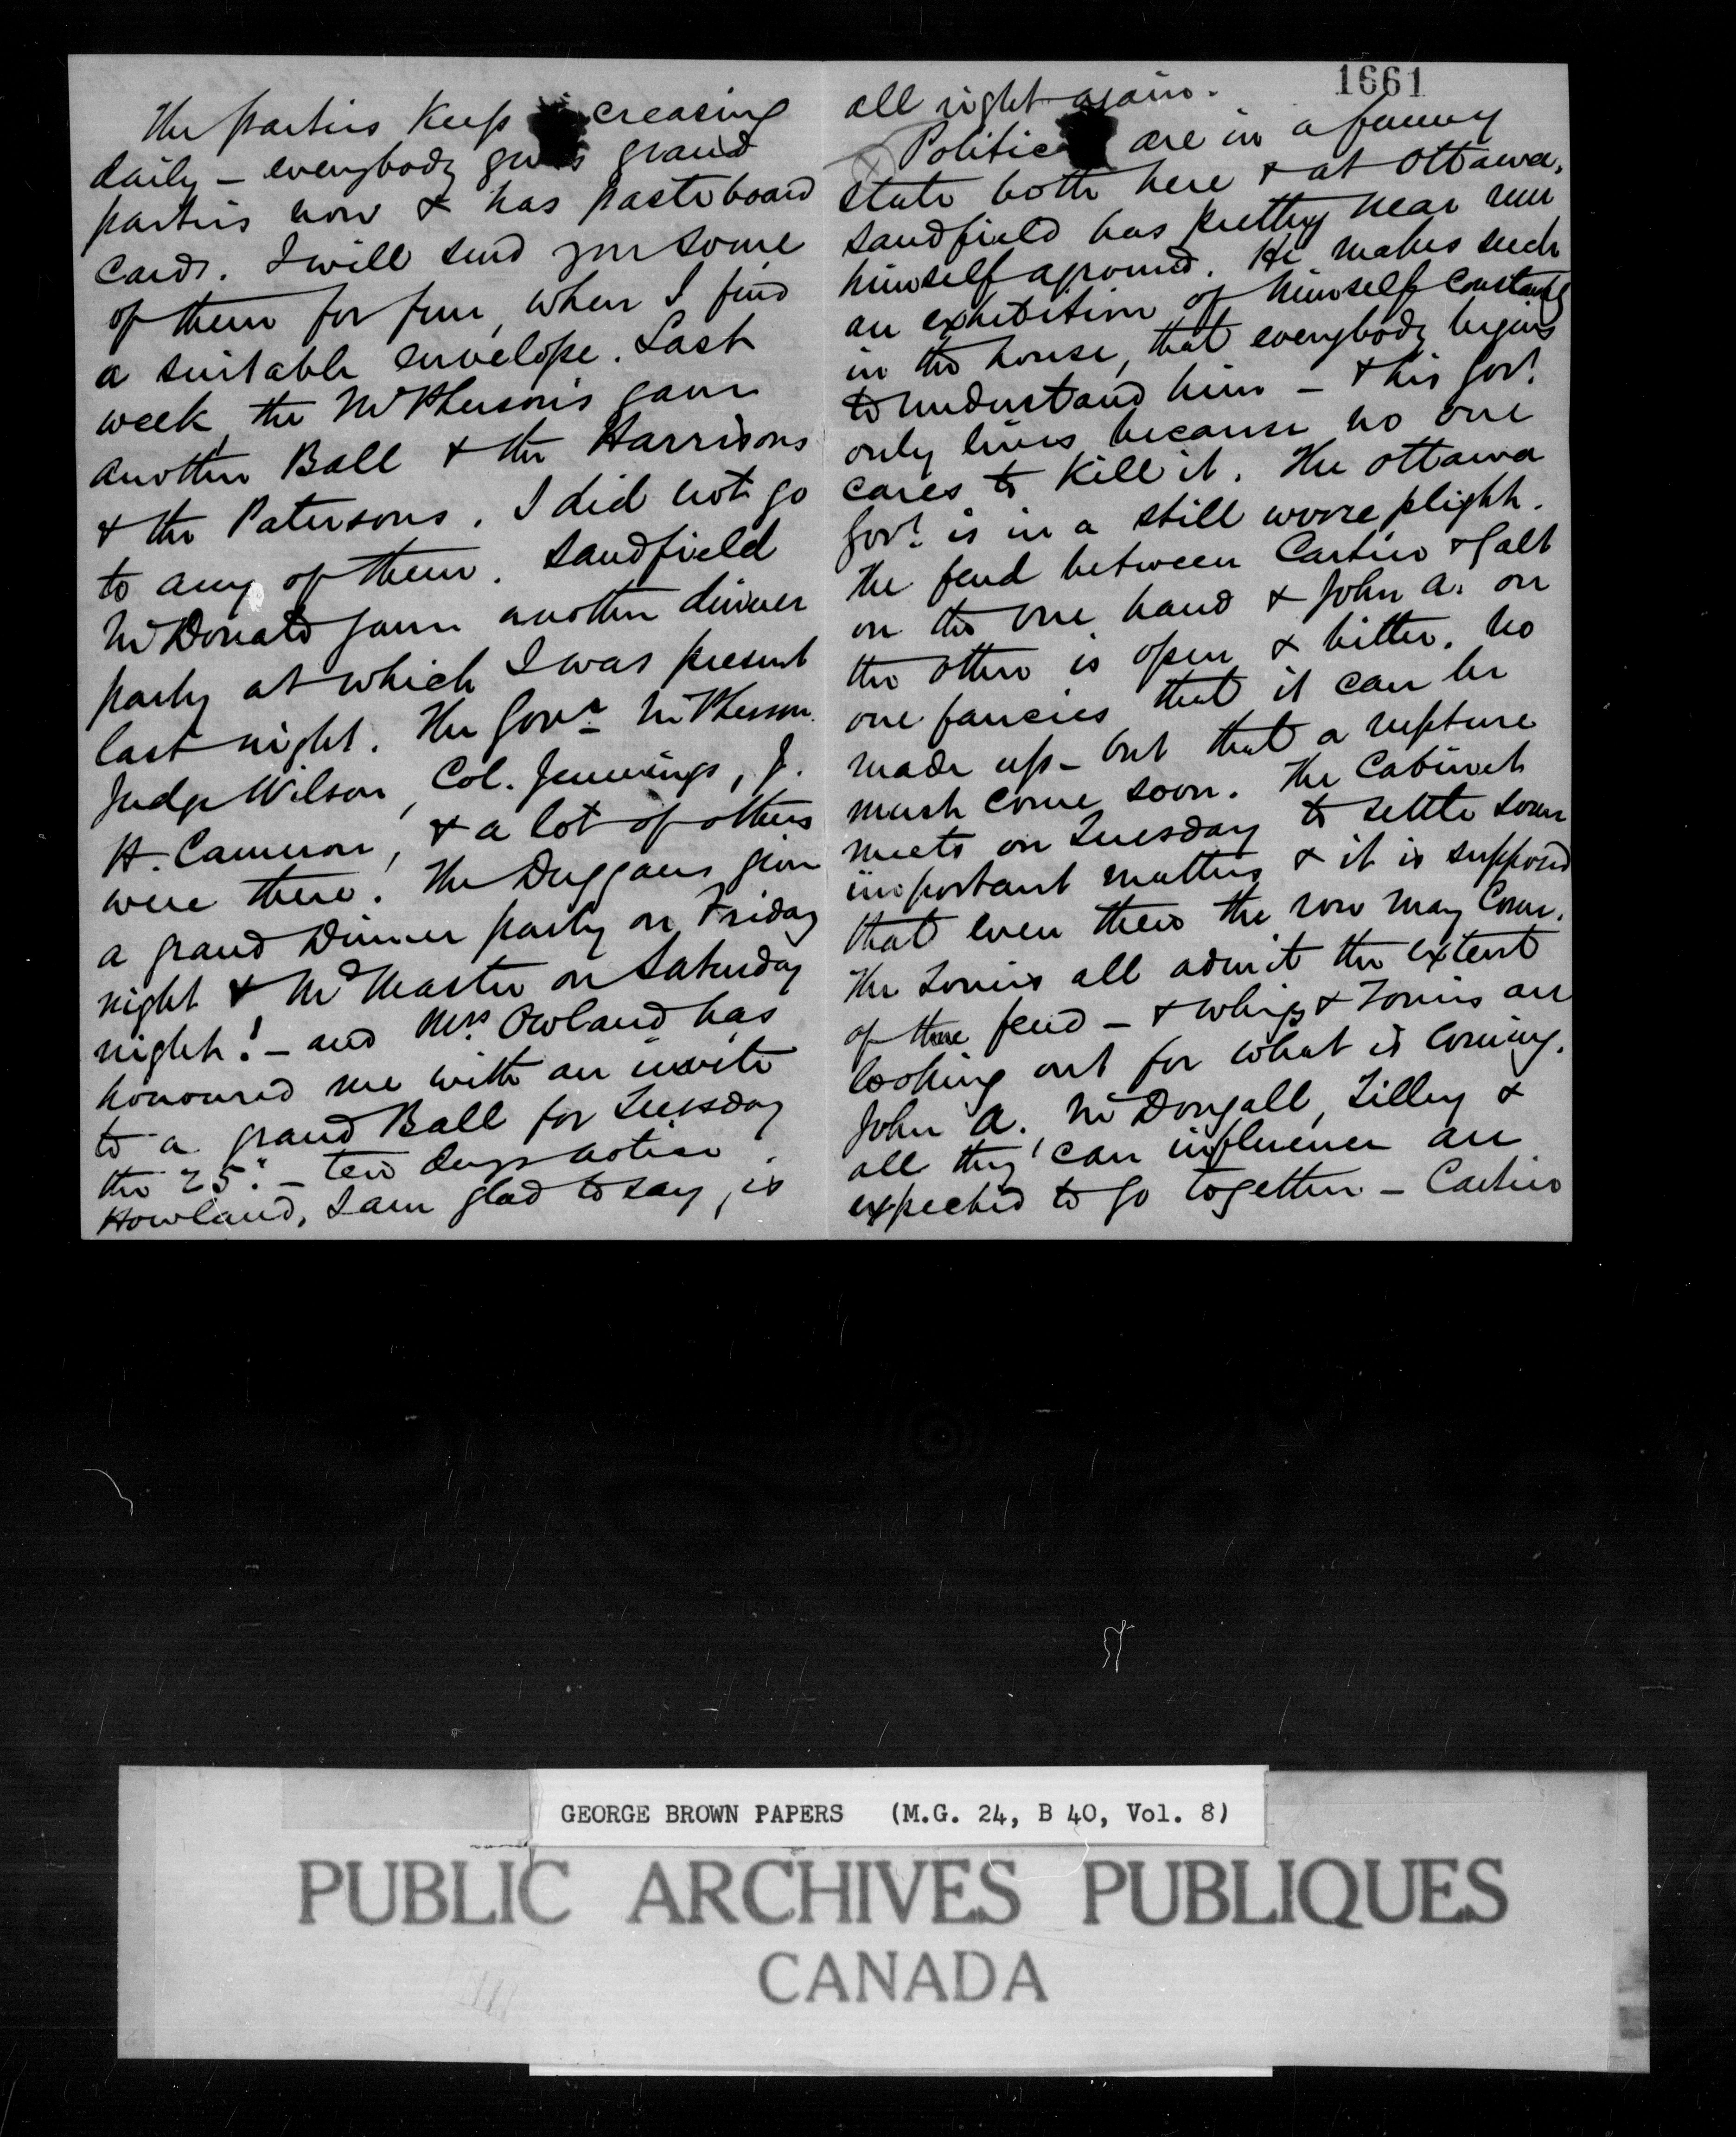 The parties keep increasing
daily - everybody gives grand
parties now & has pasteboard
cards. I will send you some
of them for fun, when I find
a suitable envelope. Last
week the McPhersons gave
another Ball & the Harrisons
& the Patersons. I did not go
to any of them. Sandfield
McDonald gave another dinner
party at which I was present
last night. The Govr. McPherson
Judge Wilson, Col. Jennings, J.
H. Cameron, & a lot of others
were there. The Duggans give
a grand Dinner party on Friday
night & McMaster on Saturday
night! - and Mrs Owland has
honoured me with an invite
to a grand Ball for Tuesday
the 25: - ten days notice.
Howland, I am glad to say, is
1661
all right again.
Politics are in a funny
state both here & at Ottawa.
Sandfield has pretty near run
himself aground. He makes such
an exhibition of himself constantly
in the house, that everybody begins
to understand him - & his Govt.
only lives because no one
cares to kill it. The Ottawa
Govt. is in a still worse plight.
The feud between Cartier & Galt
on the one hand & John A. on
the other is open & bitter. No
one fancies that it can be
made up - but that a rupture
must come soon. The Cabinet
meets on Tuesday to settle some
important matters & it is supposed
that even then the row may come.
The Tories all admit the extent
of the feud - & Whigs & Tories are
looking out for what is coming.
John A. McDougall, Tilley &
all they can influence are
expected to go together - Cartier
GEORGE BROWN PAPERS (M.G. 24, B 40, Vol. 8)
PUBLIC ARCHIVES PUBLIQUES
CANADA